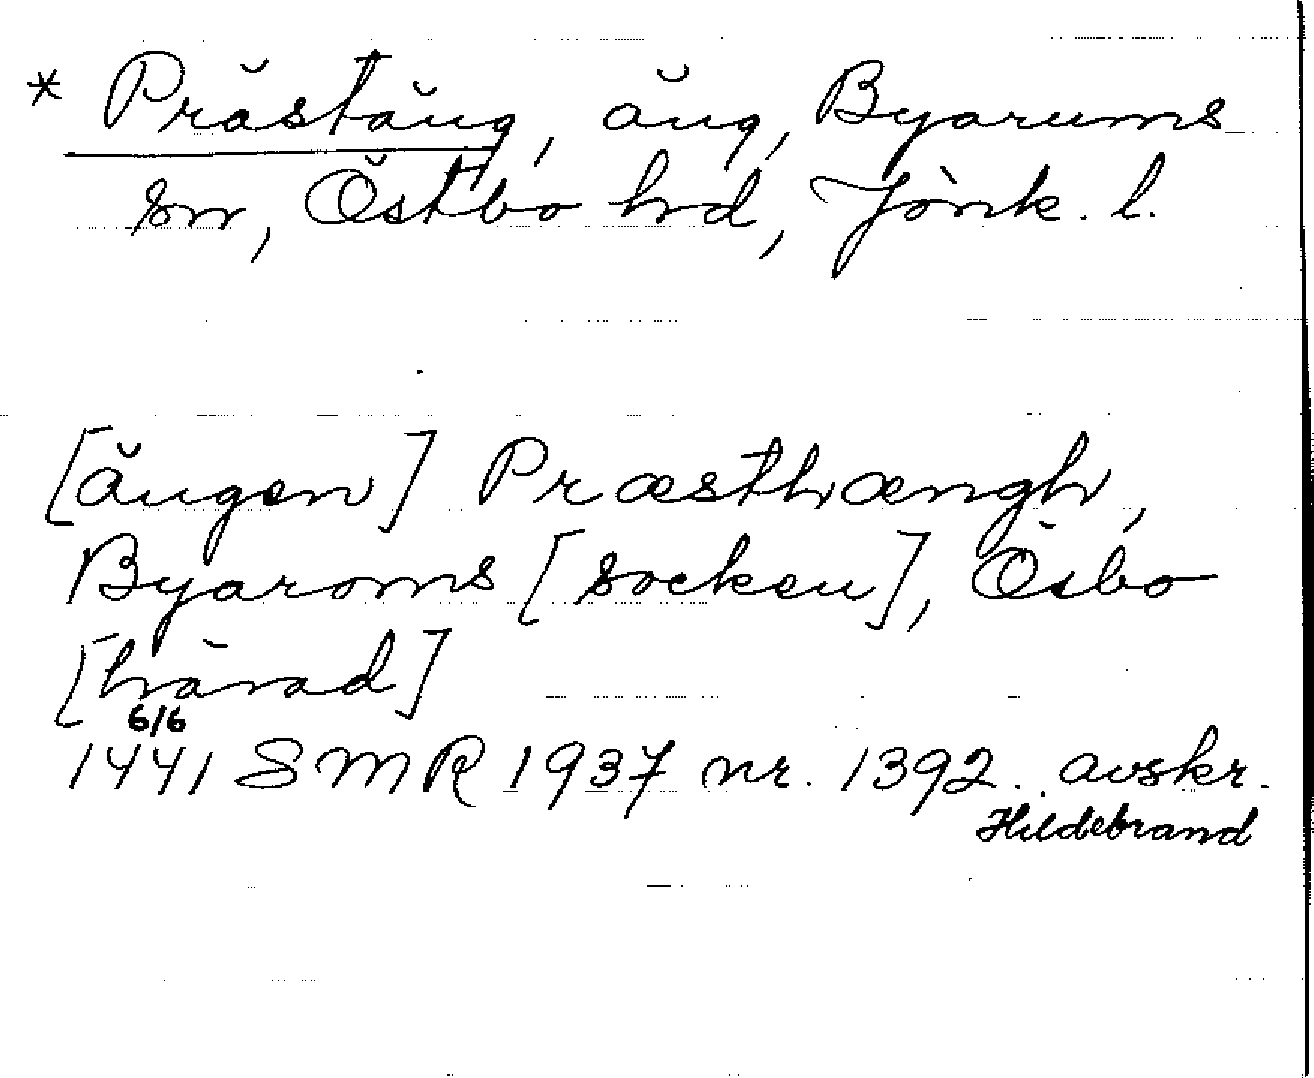 * Prästäng, äng, Byarums
sn, Östbo hd, Jönk. l.
[ängen] Præsthængh,
Byaroms [socken], Ösbo
[härad]
6/6
1441 SMR 1937 nr. 1392. avskr.
Hildebrand